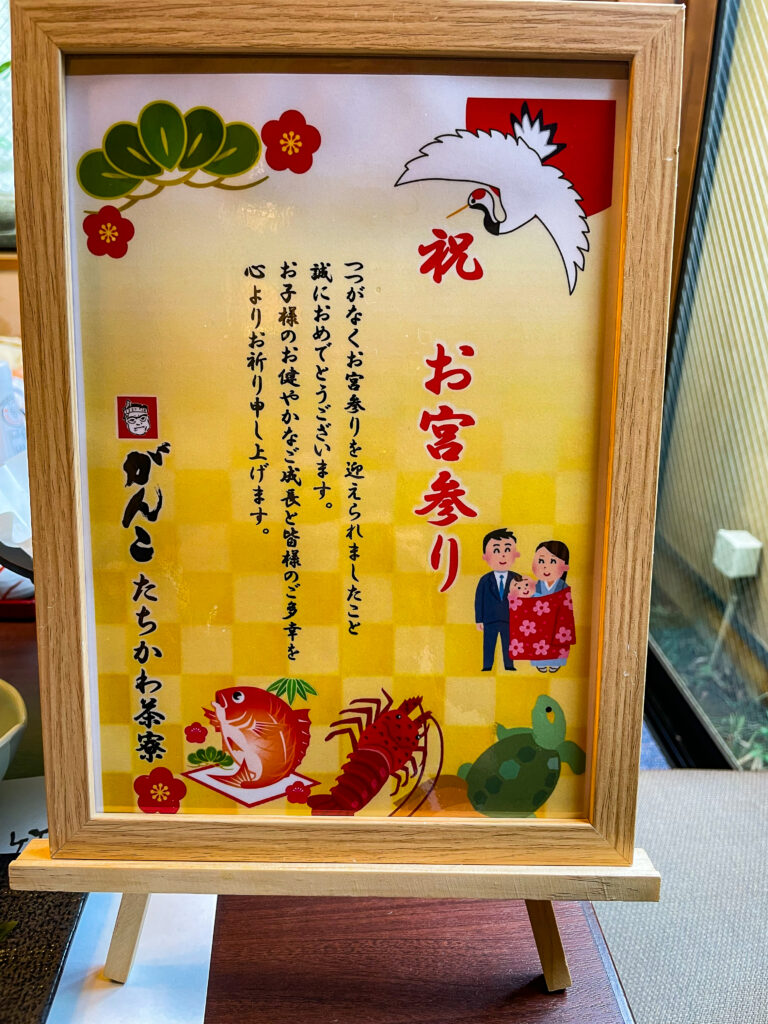 祝 お宮参り
つつがなくお宮参りを迎えられましたこと
誠におめでとうございます。
お子様のお健やかなご成長と皆様のご多幸を
心よりお祈り申し上げます。
がんこ たちかわ茶寮